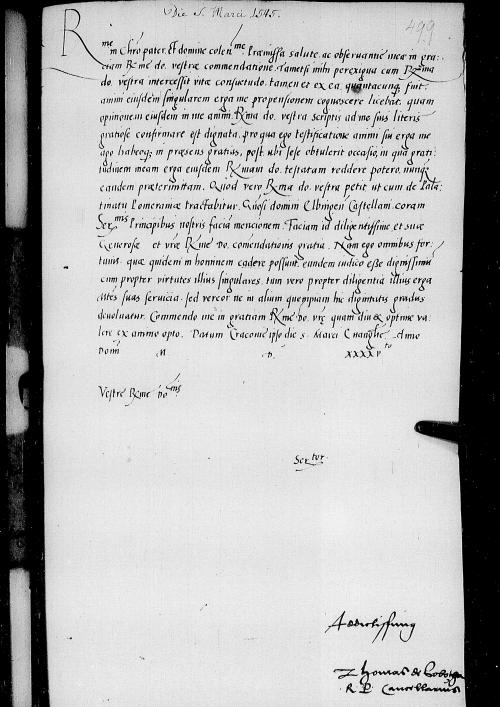 Die S. Marci 1545.
499
Rme in Chro pater. Et domine colenme. Praemissa salute, ac observantiae meae in gra=
ciam Rme do. vestrae commendatione. Tametsi mihi perexigua cum Rma
do. vestra intercessit vitae consuetudo. tamen et ex ea, quantacunq; fuit,
animi eiusdem singularem erga me propensionem cognoscere licebat. quam
opinionem eiusdem in me animi Rma do. vestra scriptis ad me suis literis
gratiose confirmare est dignata. pro qua ego testificatione animi sui erga me
ago habeoq; in praesens gratias, post ubi sese obtulerit occasio, in qua grati=
tudinem meam erga eiusdem Rmam do. testatam reddere potero, nunq;
eandem praetermittam. Quod vero Rma do. vestra petit ut cum de Pala=
tinatu Pomeraniae tractabitur. Gnosi domini Elbingen Castellani. coram
Sermis Principibus nostris faciam mencionem. Faciam id diligentissime et suae
Generose et vrae Rme Do. comendationis gratia. Nam ego omnibus for=
tunis. quae quidem in hominem cadere possunt. eundem iudico esse dignissimum
cum propter virtutes illius singulares. tum vero propter diligentiam illius erga
suas servicia. sed vereor ne in alium quempiam hic dignitatis gradus
devoluatur. Commendo me in gratiam Rme do. vre quam diu & optime va=
lere ex animo opto. Datum Cracovie ipso die S. Marci Evangliste Anno
Domi M D. XXXXVto
Vestre Rme Domis
Sertor
Addictissimus
Thomas de Sobotha
R P Cancellarius